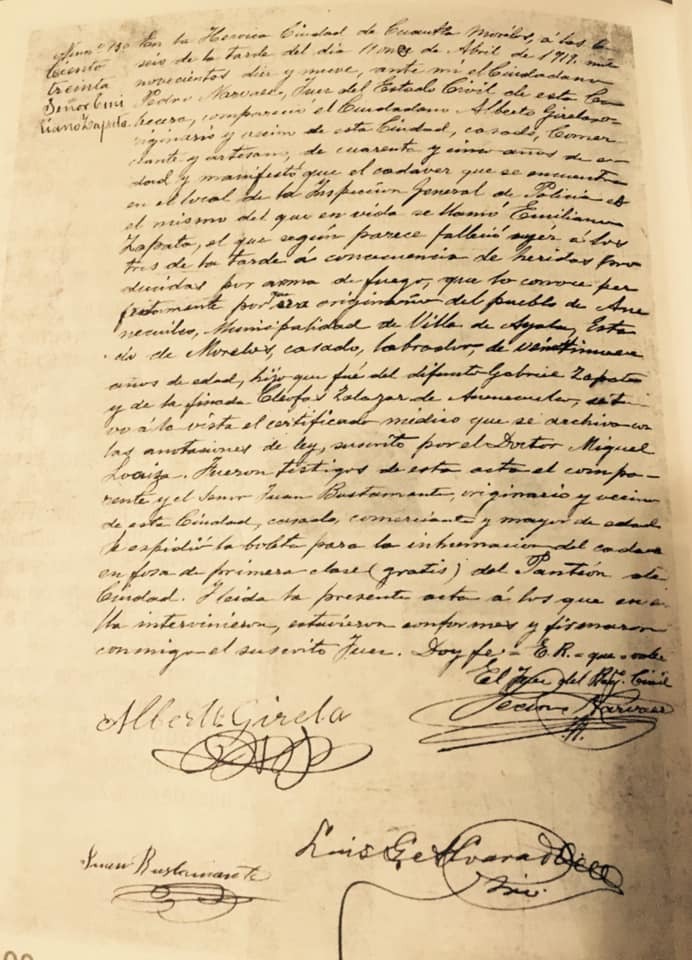 Núm.º 130
Ciento
treinta
Señor Emi
liano Zapata
En la Heroica Ciudad de Cuautla Morelos, á las
seis de la tarde del dia 11 once de Abril de 1919, mil
novecientos diez y nueve, ante mi el Ciudadano
Pedro Narvaes, Juez del Estado Civil de esta Ca-
becera, compareció el Ciudadano Alberto Girela o-
riginario y vecino de esta Ciudad, casado, Comer-
ciante y artesano, de cuarenta y cinco años de e-
dad y manifestó que el cadaver que se encuentra
en el local de la Inspeccion General de Policía es
el mismo del que en vida se llamó Emiliano
Zapata, el que según parece falleció ayer á las
tres de la tarde á concecuencia de heridas pro
ducidas por arma de fuego, que lo conoce per
fectamente por que era originario del pueblo de Ane
necuilco, Municipalidad de Villa de Ayala, Esta
do de Morelos, casado, labrador, de veintinueve
años de edad, hijo que fué del difunto Gabriel Zapata
y de la finada Cleofas Zalazar de Anenecuilco, se tu
vo á la vista el certificado médico que se archiva con
las anotaciones de ley, suscrito por el Doctor Miguel
Loaiza. Fueron testigos de esta acta el compa-
rente y el Señor Juan Bustamante, originario y vecino
de esta Ciudad, casado, comerciante y mayor de edad
Se expidió la boleta para la inhumacion del cadaver
en fosa de primera clase (gratis) del Panteón de la
Ciudad. Y leida la presente acta á los que en e-
lla intervinieron, estuvieron conformes y firmaron
conmigo el suscrito Juez. Doy fe - E.R. - que - vale
El Juez del Reg. Civil
Alberto Girela
Pedro Narvaes
Juan Bustamante
Luis G. Alvarado
Srio.